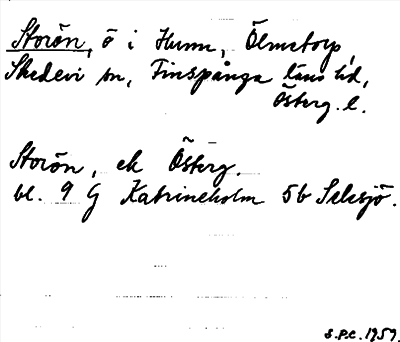 Storön, ö i Hunn, Ölmstorp,
Skedevi sn, Finspånga läns hd,
Österg. l.
Storön, ek Österg.
bl. 9 G Katrineholm 5b Selesjö.
S.P.C. 1959.